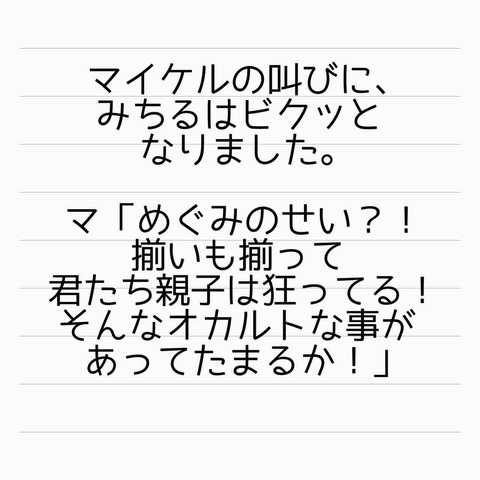 マイケルの叫びに、
みちるはビクッと
なりました。
マ「めぐみのせい？！
揃いも揃って
君たち親子は狂ってる！
そんなオカルトな事が
あってたまるか！」